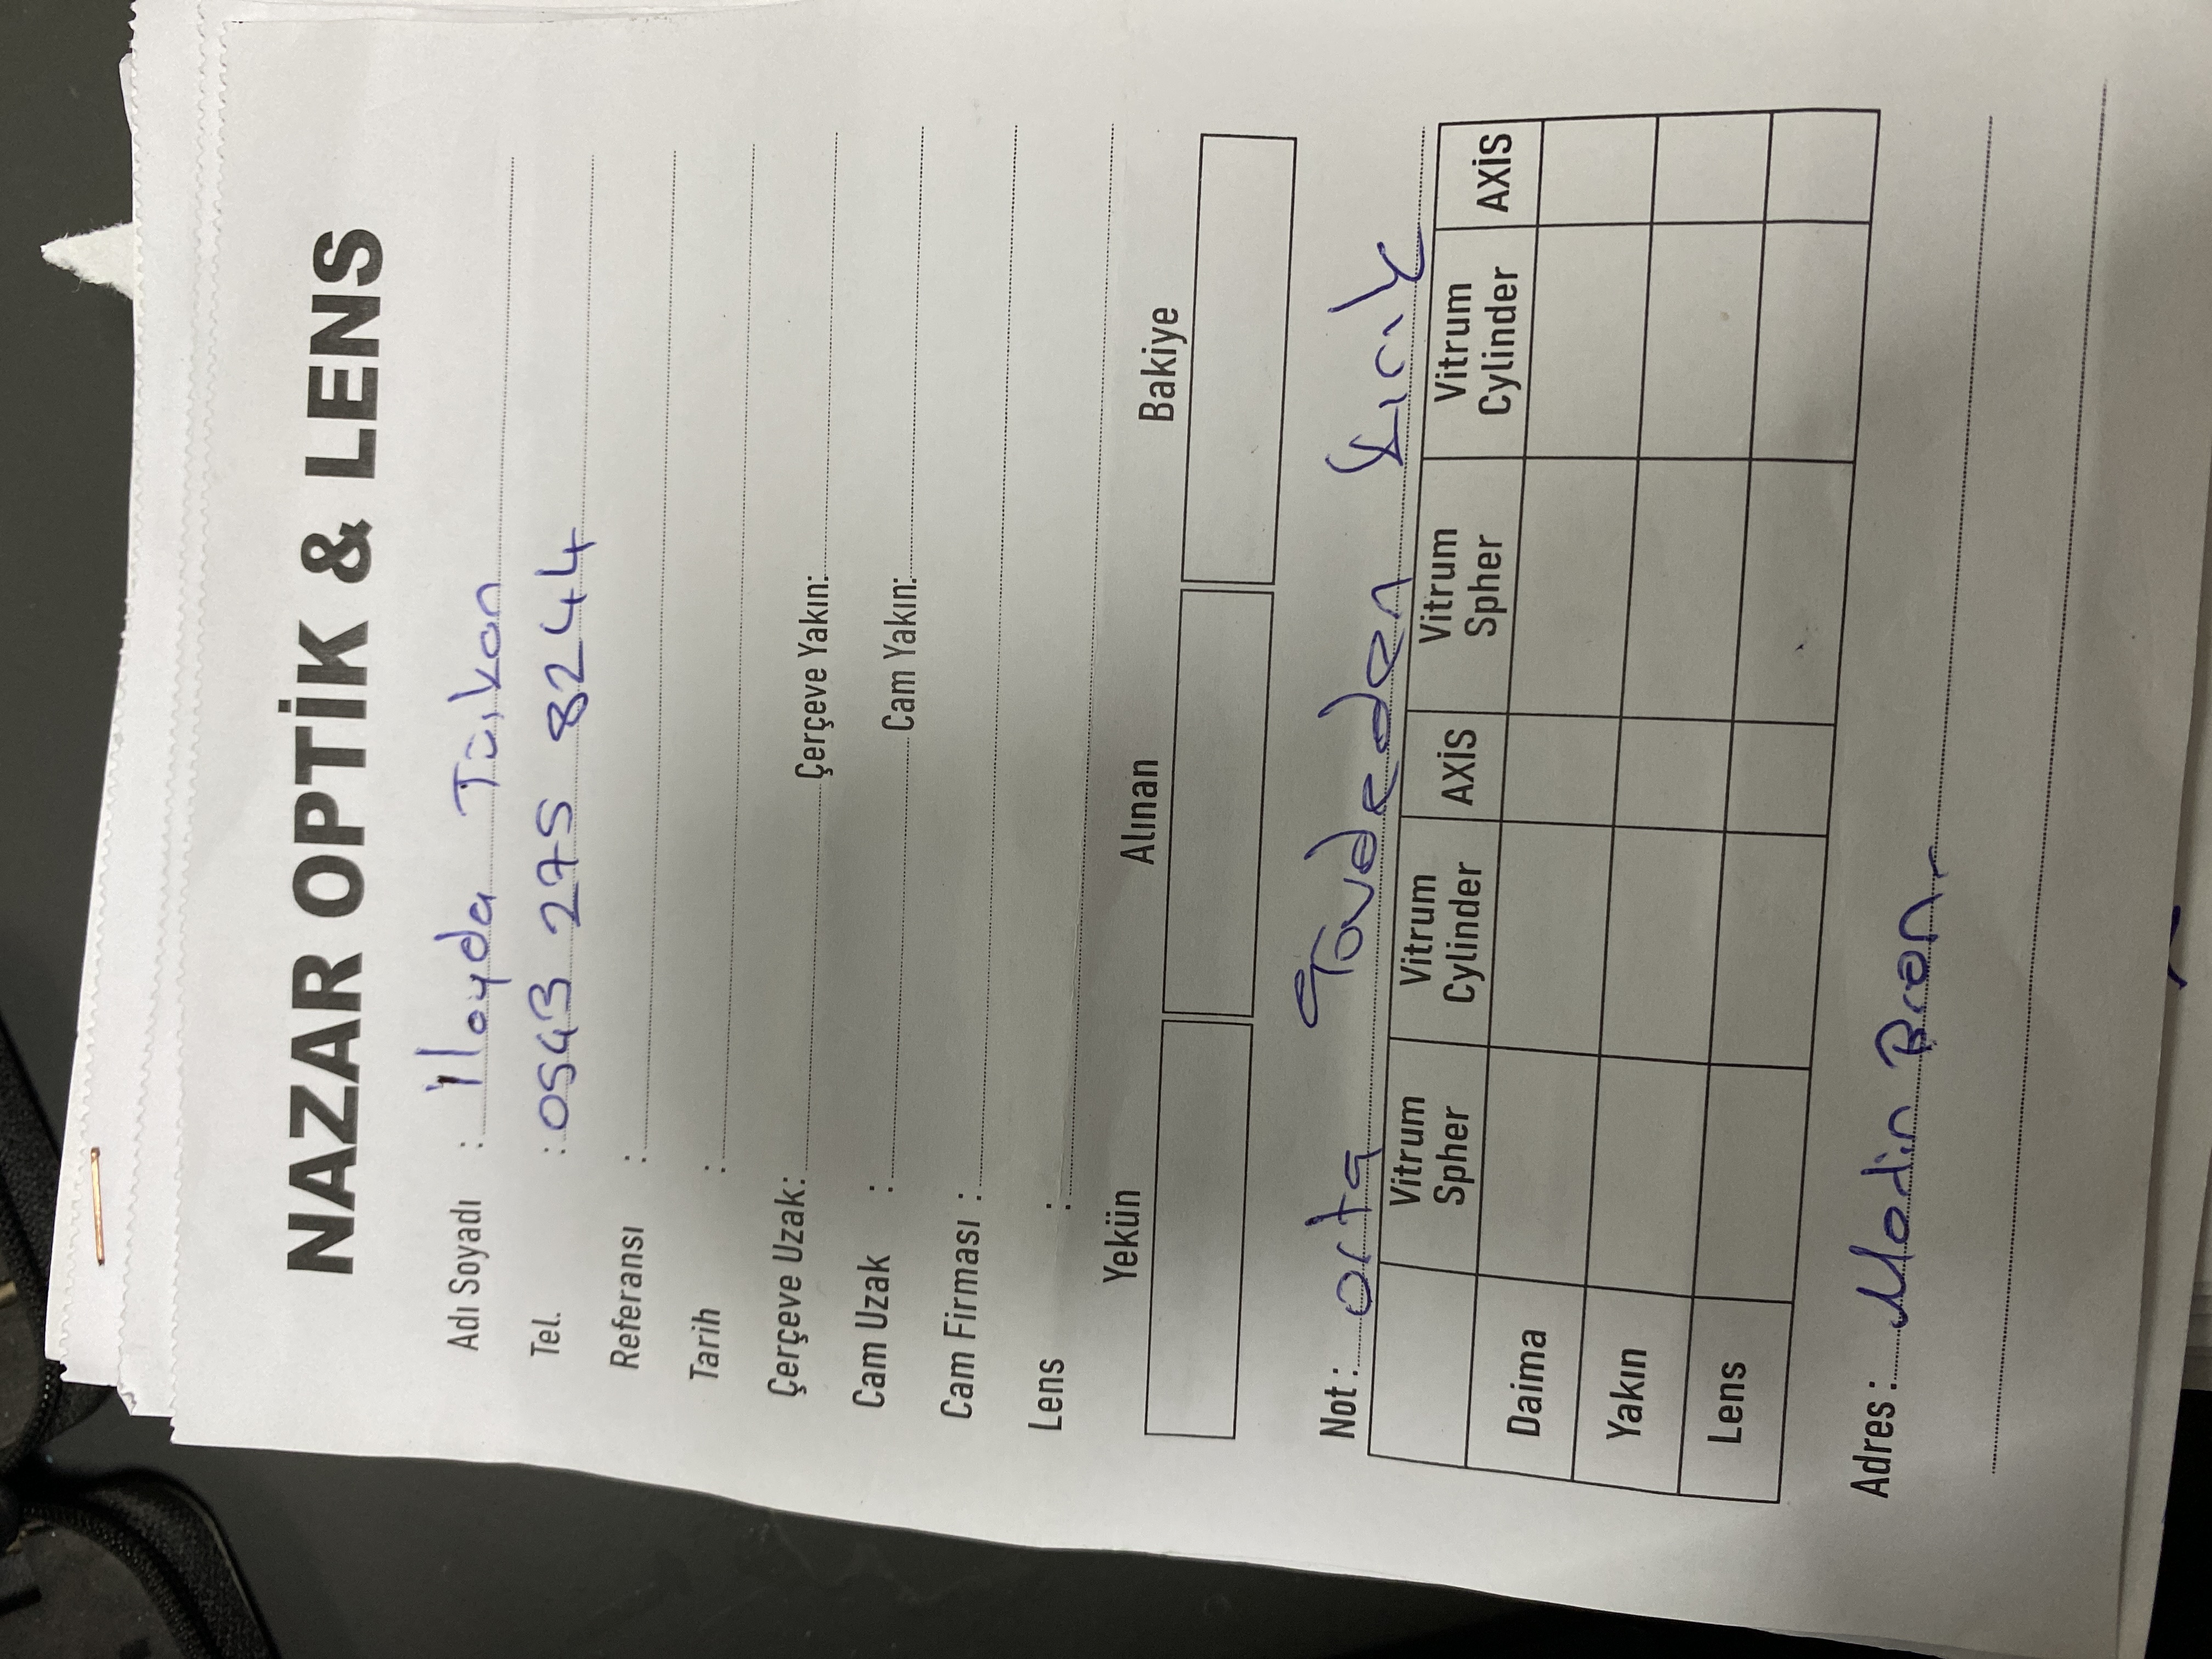 NAZAR OPTİK & LENS
Adı Soyadı : İlayda Türkan
Tel. : 0543 275 8244
Referansı :
Tarih :
Çerçeve Uzak: Çerçeve Yakın:
Cam Uzak : Cam Yakın:
Cam Firması :
Lens :
Yekün Alınan Bakiye
Not : orta Gövdeden Kırık
Vitrum Spher Vitrum Cylinder AXİS Vitrum Spher Vitrum Cylinder AXİS
Daima
Yakın
Lens
Adres :